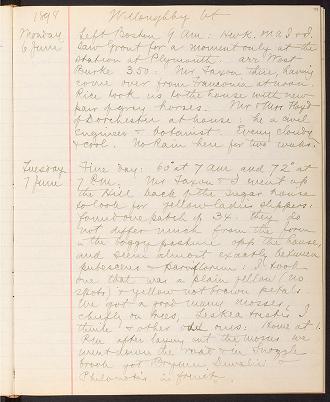 1898 Willoughby Vt
Monday Left Boston 9 am: N. & W. M & I rd.
6 June Saw Grout for a moment only at the
station at Plymouth. arr West
Burke 3.50. Mr Faxon there, having
come over from Franconia at noon.
Rice took us to the house with new
pair of gray horses. Mr & Mrs
of Dorchester at house: he a civil
Engineer & botanist. Every cloudy
& cool. No Rain here for two weeks.
Tuesday Fine day: 60° at 7 am and 72° at
7 June 7 Pm. Mr Faxon & I went up
the Hill back of the sugar house
to look for yellow ladies slippers:
found one patch of 34. they do
not differ much from the form
in the boggy pasture opp the house,
and seem almost exactly between
pubescens & parviflorum: I took
one that was a plain yellow (no
spots) & yellow not brown petals.
We got a good many mosses,
chiefly on trees, Leskea tristis I
think & other odd ones: Home at 1.
Pm after laying out the mosses we
went down the road & in
brook got Bryum Duvalii &
Philonotis in fruit.